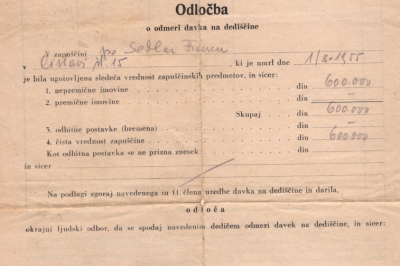 Odločba
o odmeri davka na dediščine
V zapuščini po Sedlar Francu
v št. 15, ki je umrl dne 1/8-1955
je bila ugotovljena sledeča vrednost zapuščinskih predmetov, in sicer:
1. nepremične imovine din 600.000
2. premične imovine din —
Skupaj din 600.000
3. odbitne postavke (bremena) din —
4. čista vrednost zapuščine din 600.000
Kot odbitna postavka se ne prizna znesek
in sicer
Na podlagi zgoraj navedenega in 11. člena uredbe davka na dediščine in darila.
odloča
okrajni ljudski odbor, da se spodaj navedenim dedičem odmeri davek na dediščine, in sicer: